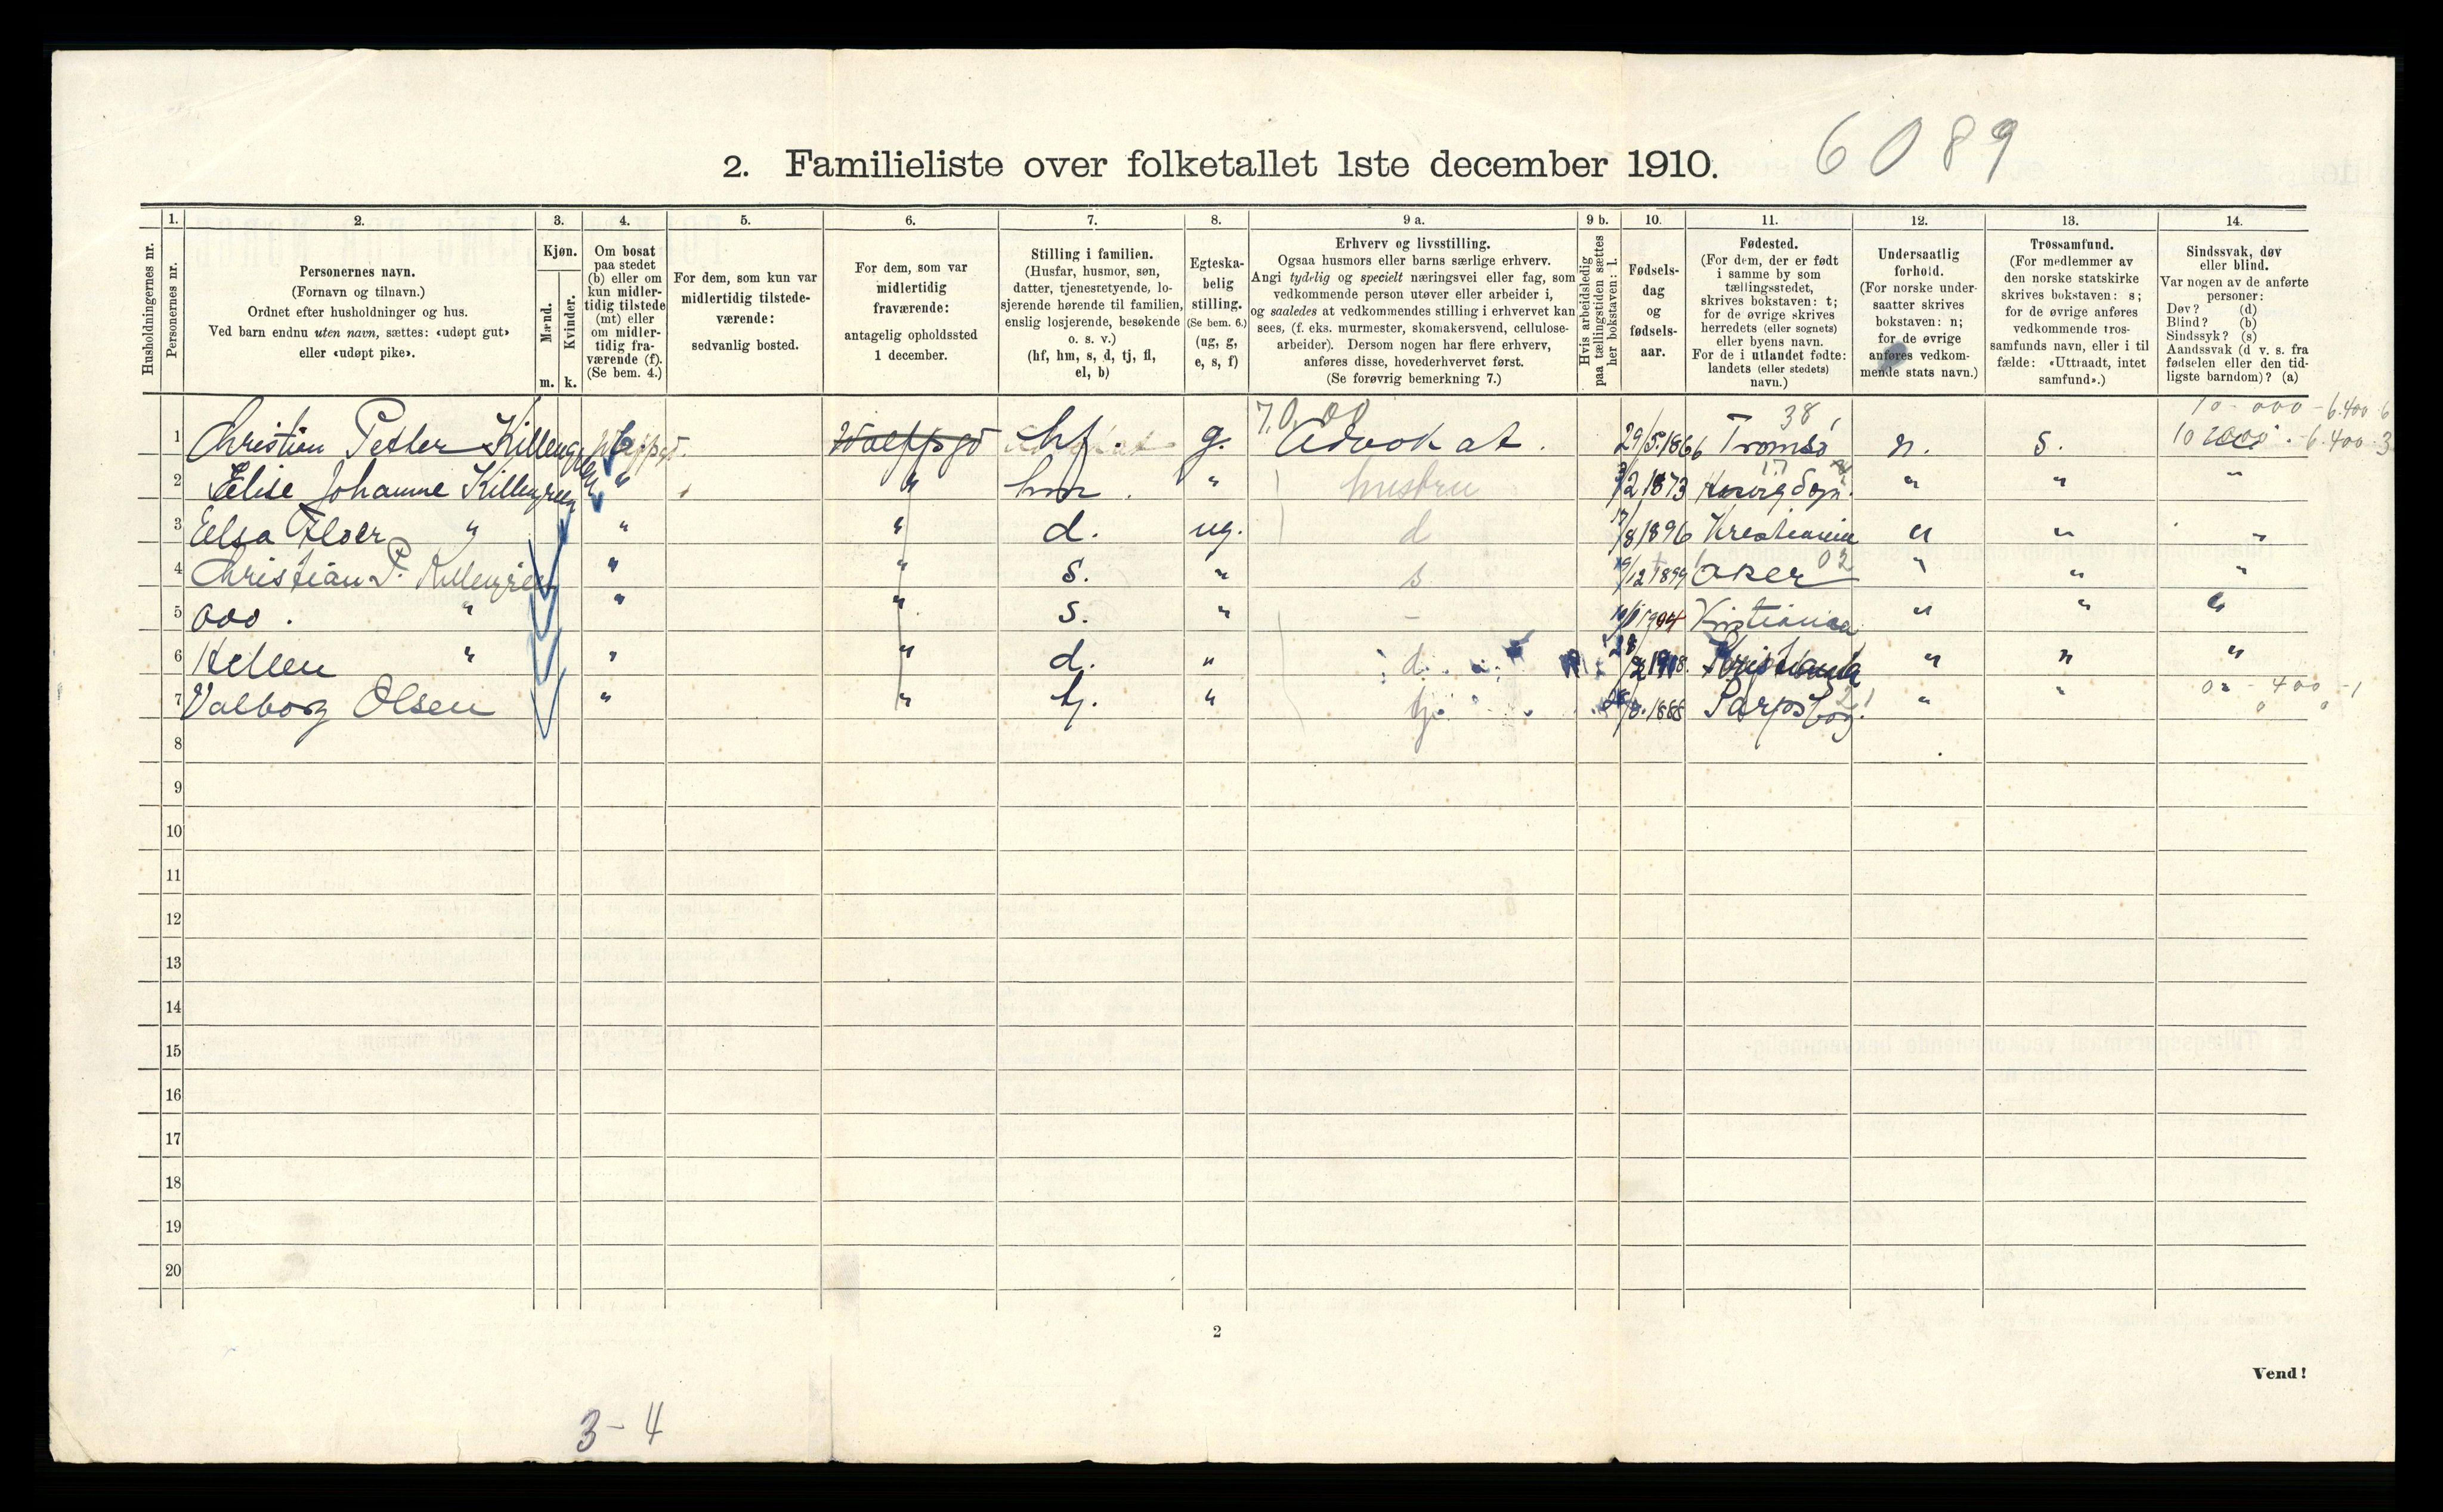 6089
2. Familieliste over folketallet 1ste december 1910.
Husholdningernes nr.
1. Personernes nr.
2. Personernes navn.
(Fornavn og tilnavn.)
Ordnet efter husholdninger og hus.
Ved barn endnu uten navn, sættes: «udøpt gut»
eller «udøpt pike».
3. Kjøn.
Mænd. m.
Kvinder. k.
4. Om bosat
paa stedet
(b) eller om
kun midler-
tidig tilstede
(mt) eller
om midler-
tidig fra-
værende (f).
(Se bem. 4.)
5. For dem, som kun var
midlertidig tilstede-
værende:
sedvanlig bosted.
6. For dem, som var
midlertidig
fraværende:
antagelig opholdssted
1 december.
7. Stilling i familien.
(Husfar, husmor, søn,
datter, tjenestetyende, lo-
sjerende hørende til familien,
enslig losjerende, besøkende
o. s. v.)
(hf, hm, s, d, tj, fl,
el, b)
8. Egteska-
belig
stilling.
(Se bem. 6.)
(ug, g,
e, s, f)
9 a. Erhverv og livsstilling.
Ogsaa husmors eller barns særlige erhverv.
Angi tydelig og specielt næringsvei eller fag, som
vedkommende person utøver eller arbeider i,
og saaledes at vedkommendes stilling i erhvervet kan
sees, (f. eks. murmester, skomakersvend, cellulose-
arbeider). Dersom nogen har flere erhverv,
anføres disse, hovederhvervet først.
(Se forøvrig bemerkning 7.)
9 b. Hvis arbeidsledig
paa tællingstiden sættes
her bokstaven: l.
10. Fødsels-
dag
og
fødsels-
aar.
11. Fødested.
(For dem, der er født
i samme by som
tællingsstedet,
skrives bokstaven: t;
for de øvrige skrives
herredets (eller sognets)
eller byens navn.
For de i utlandet fødte:
landets (eller stedets)
navn.)
12. Undersaatlig
forhold.
(For norske under-
saatter skrives
bokstaven: n;
for de øvrige
anføres vedkom-
mende stats navn.)
13. Trossamfund.
(For medlemmer av
den norske statskirke
skrives bokstaven: s;
for de øvrige anføres
vedkommende tros-
samfunds navn, eller i til
fælde: «Uttraadt, intet
samfund».)
14. Sindssvak, døv
eller blind.
Var nogen av de anførte
personer:
Døv? (d)
Blind? (b)
Sindssyk? (s)
Aandssvak (d v. s. fra
fødselen eller den tid-
ligste barndom)? (a)
7.0.00 38 10 000 - 6.400 6
1 Christian Petter Killengreen b Wolffsgd hf. g. Advokat. 29/5.1866 Tromsø n. s. 6.400 3
2 Elise Johanne Killengreen " " hm. " hustru 2 1873 " " "
3 Elsa Floer " " " d. ug. d 17/8 1896 Kristiania " " "
4 Christian P. Killengreen " " s. " s 12 1899 Aker 02 " " "
5 Odo. " " " s. " - Kristiania " " "
6 Hellen " " " d. " d Kristiania " " "
7 Valborg Olsen " " tj. " tj. 1888 Sarpsborg. " " 400 - 1
8
9
10
11
12
13
14
15
16
17
18
19
20
2
Vend!
3-4